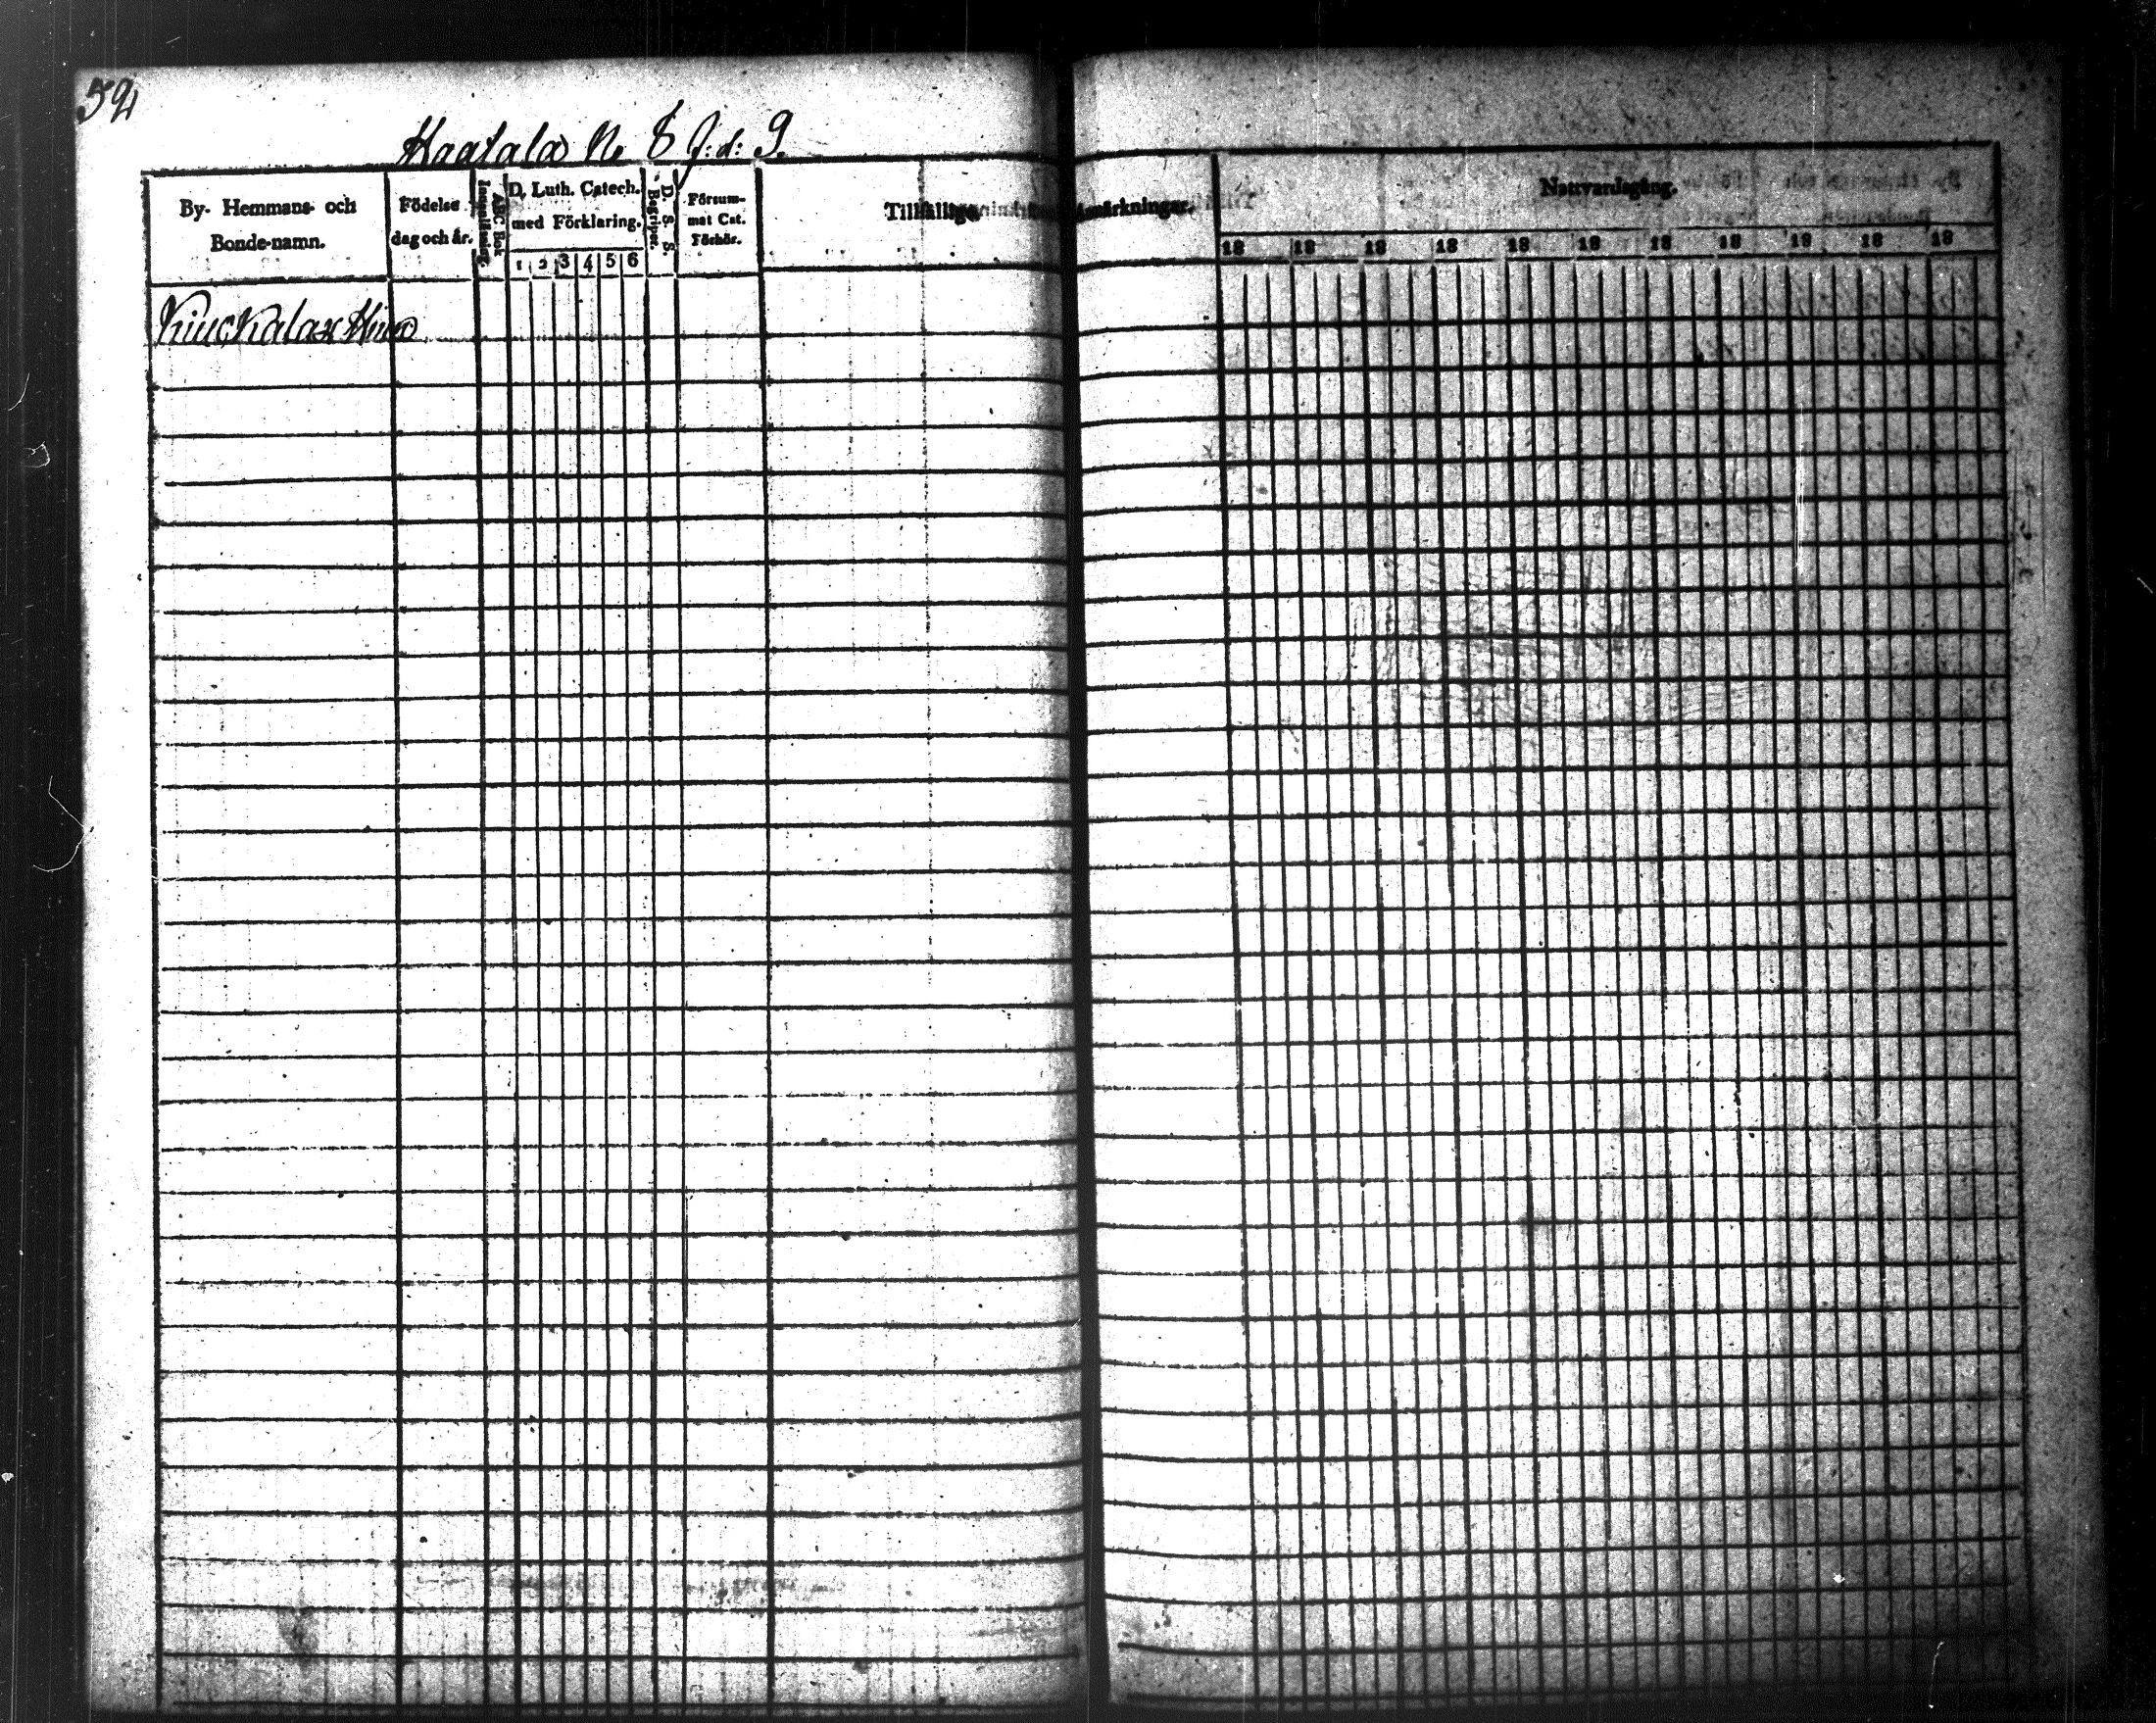 594
Haatala No 8 J: d: 9.
By- Hemmans- och Bonde-namn.
Födelse dag och år.
Innanläsning.
ABC Bok
D. Luth. Catech. med Förklaring.
1 2 3 4 5 6
D. S. S. Begriper.
Försum-
mat Cat.
Förhör.
Tillfällige Anmärkningar.
Nattvardsgång.
18 18 18 18 18 18 18 18 18 18 18